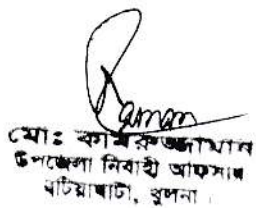 মোঃ কামরুজ্জামান
উপজেলা নির্বাহী অফিসার
বটিয়াঘাটা, খুলনা